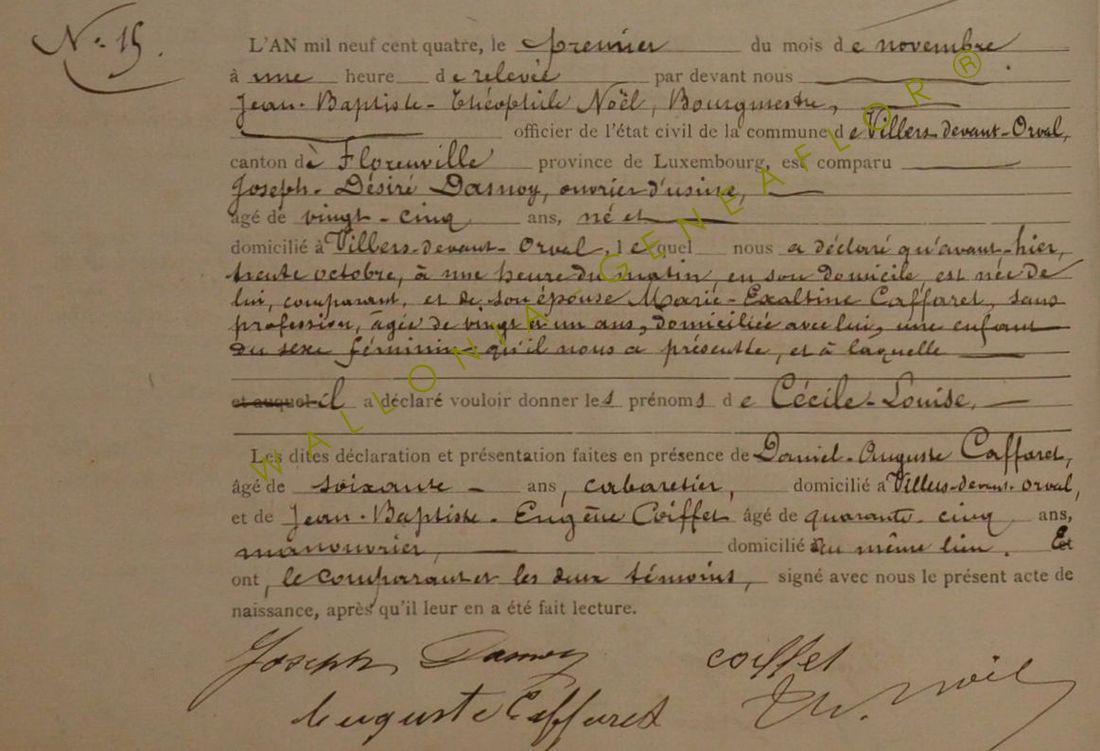 N° 15.
L'AN mil neuf cent quatre, le premier du mois de novembre
à une heure de relevée par devant nous
Jean-Baptiste-Théophile Noël, Bourgmestre,
officier de l'état civil de la commune de Villers-devant-Orval,
canton de Florenville province de Luxembourg, est comparu
Joseph-Désiré Dasnoy, ouvrier d'usine,
âgé de vingt-cinq ans, né et
domicilié à Villers-devant-Orval, lequel nous a déclaré qu'avant-hier,
trente octobre, à une heure du matin, en son domicile, est née de
lui, comparant, et de son épouse Marie-Exaltine Caffaret, sans
profession, âgée de vingt et un ans, domiciliée avec lui, une enfant
du sexe féminin qu'il nous a présentée, et à laquelle
et auquel il a déclaré vouloir donner les prénoms de Cécile-Louise,
Les dites déclaration et présentation faites en présence de Daniel-Auguste Caffaret,
âgé de soixante ans, cabaretier, domicilié à Villers-devant-Orval,
et de Jean-Baptiste-Eugène Coiffet âgé de quarante-cinq ans,
manouvrier, domicilié au même lieu. Et
ont, le comparant et les deux témoins, signé avec nous le présent acte de
naissance, après qu'il leur en a été fait lecture.
Joseph Dasnoy coiffet
Auguste Caffaret Th. Noël
WALLONIA-GENEAFLOR ®